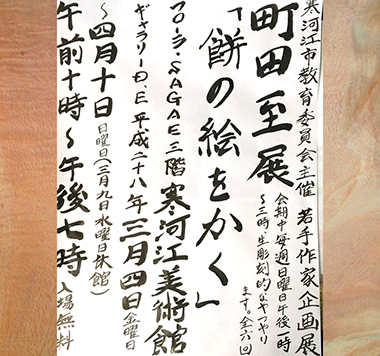 寒河江市教育委員会主催 若手作家企画展
町田至展
会期中毎週日曜日午後一時
〜三時生彫刻的なやつやり
ます。全六回
「餅の絵をかく」
フローラ・SAGAE 三階 寒河江美術館
ギャラリーD.E 平成二十八年三月四日金曜日
〜四月十日日曜日(三月九日水曜日休館)
午前十時〜午後七時入場無料